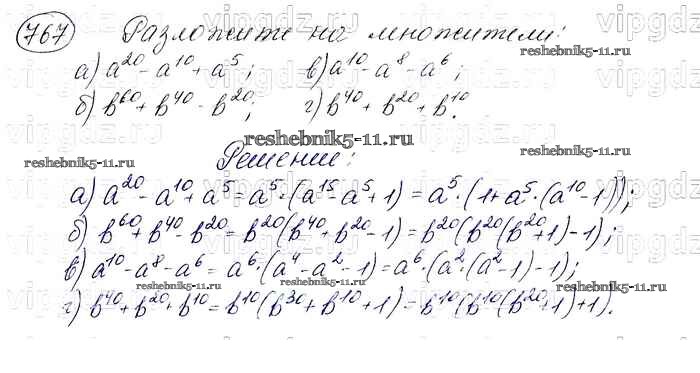 767 Разложите на множители:
а) a²⁰ - a¹⁰ + a⁵; в) a¹⁰ - a⁸ - a⁶;
б) b⁶⁰ + b⁴⁰ - b²⁰; г) b⁴⁰ + b²⁰ + b¹⁰.
reshebnik5-11.ru
reshebnik5-11.ru
Решение:
reshebnik5-11.ru
reshebnik5-11.ru
а) a²⁰ - a¹⁰ + a⁵ = a⁵·(a¹⁵ - a⁵ + 1) = a⁵·(1 + a⁵·(a¹⁰ - 1));
б) b⁶⁰ + b⁴⁰ - b²⁰ = b²⁰(b⁴⁰ + b²⁰ - 1) = b²⁰(b²⁰(b²⁰ + 1) - 1);
в) a¹⁰ - a⁸ - a⁶ = a⁶·(a⁴ - a² - 1) = a⁶·(a²·(a² - 1) - 1);
reshebnik5-11.ru
reshebnik5-11.ru
г) b⁴⁰ + b²⁰ + b¹⁰ = b¹⁰(b³⁰ + b¹⁰ + 1) = b¹⁰(b¹⁰(b²⁰ + 1) + 1).